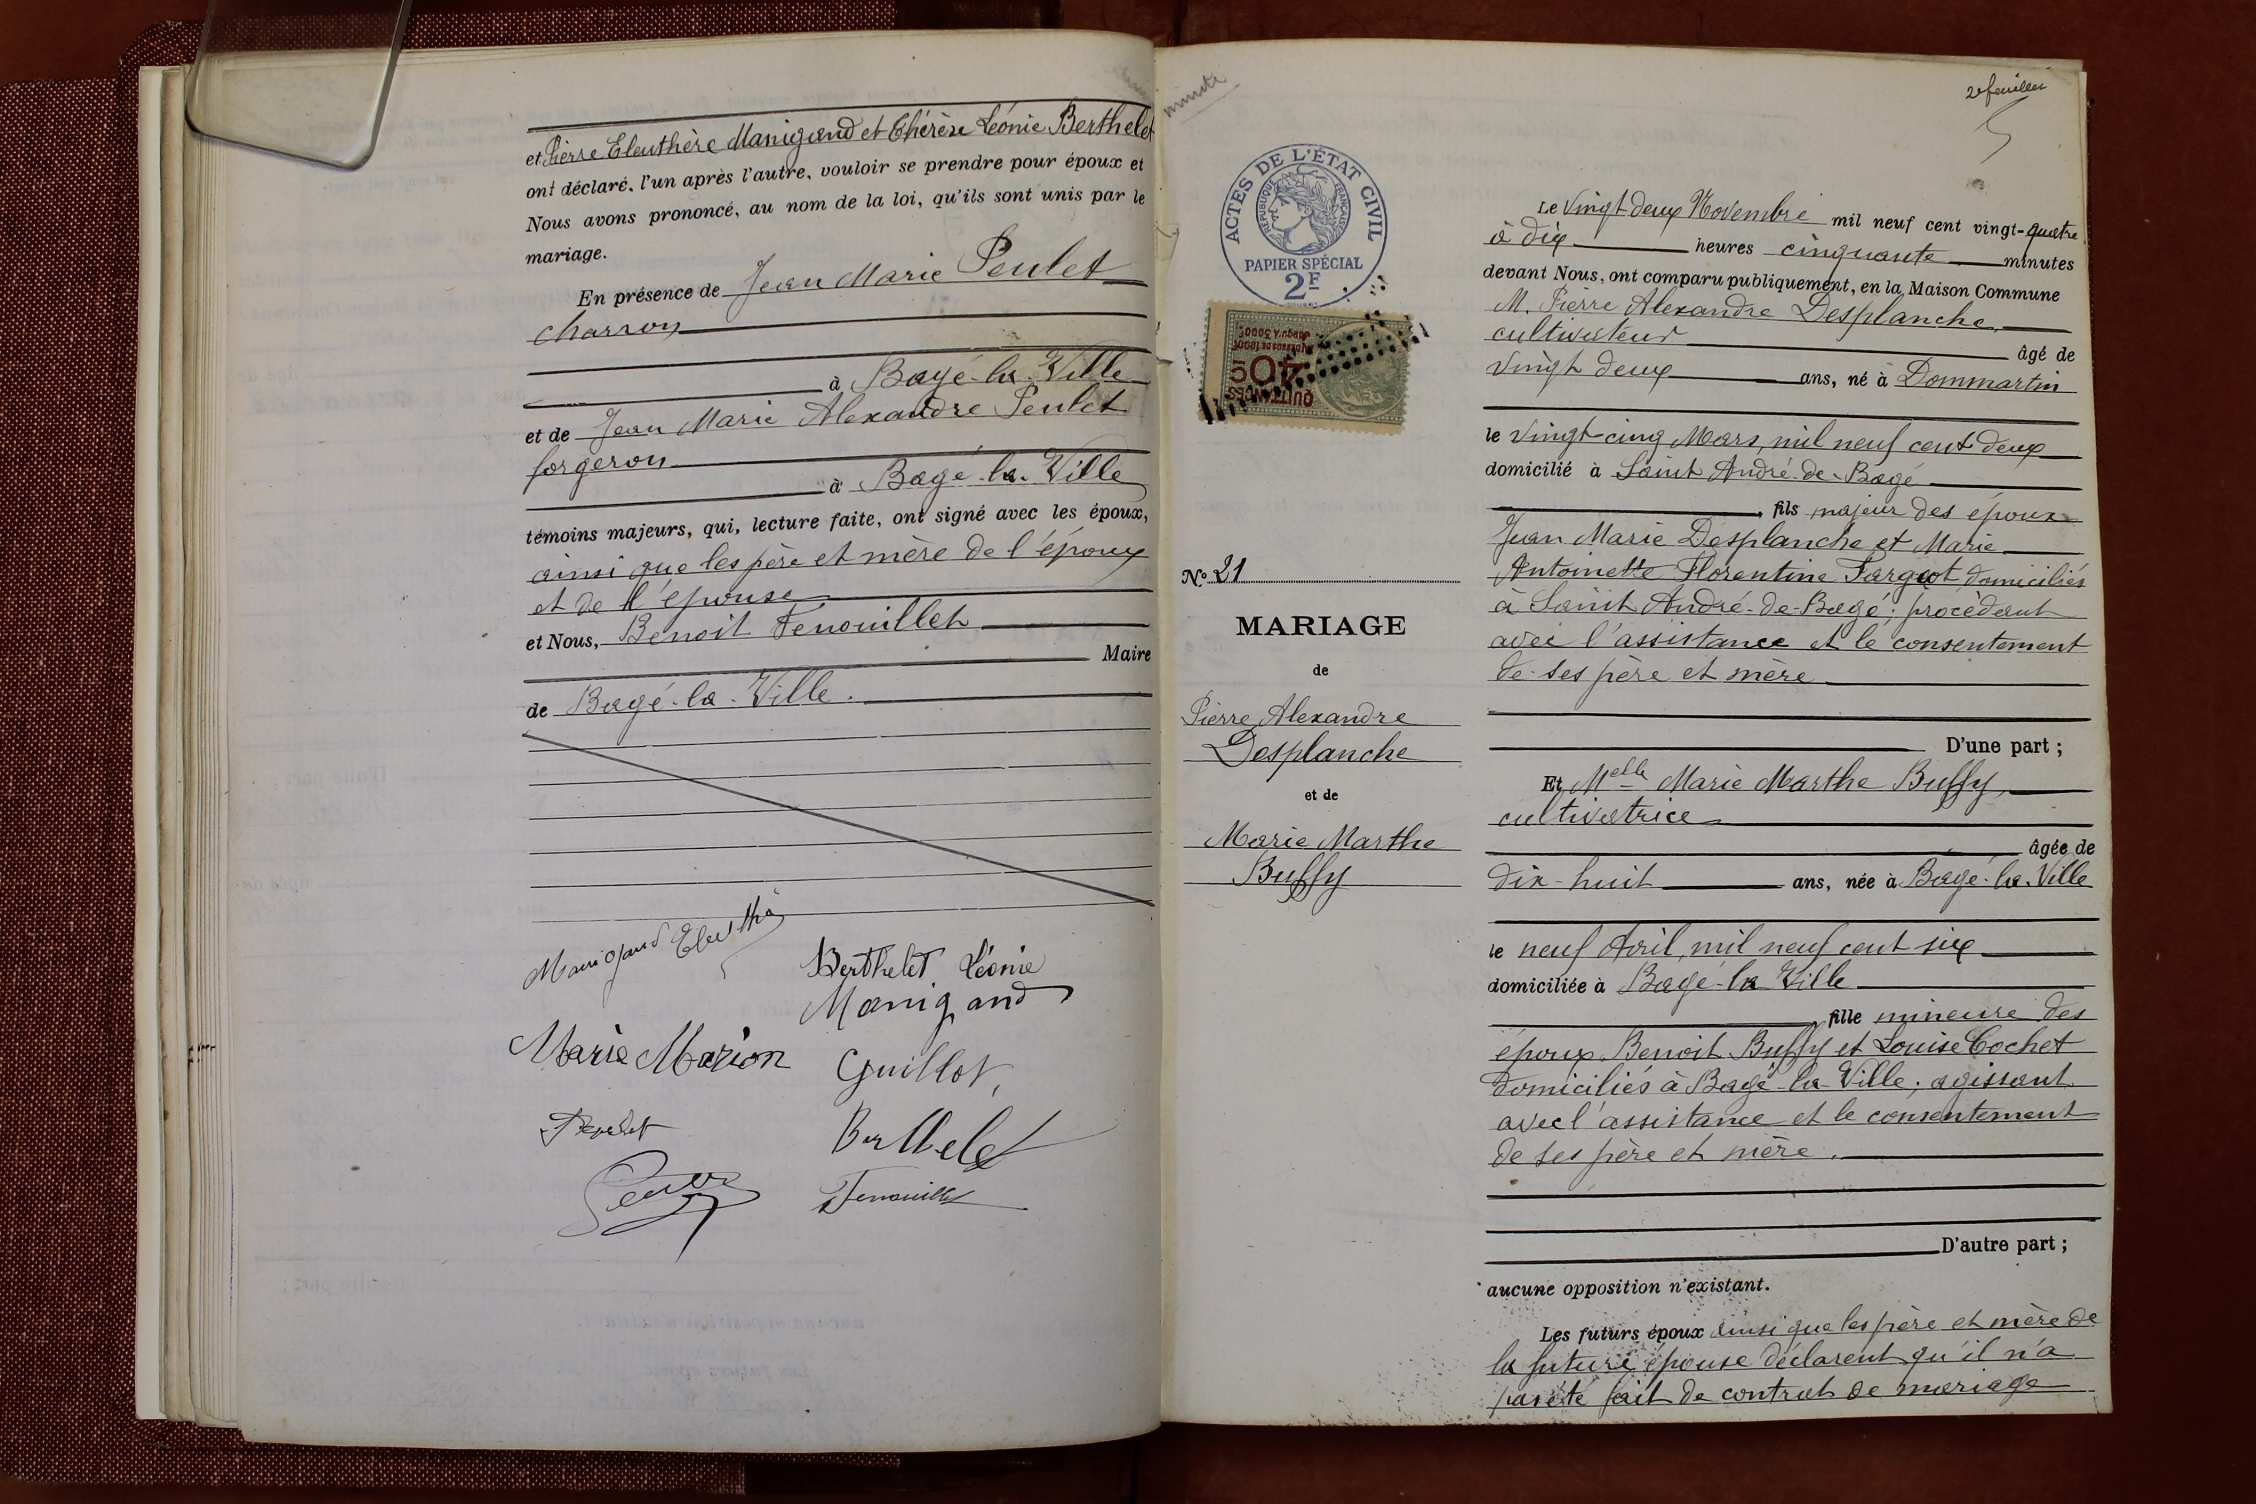 et Pierre Eleuthère Manigand et Thérèse Léonie Berthelet
ont déclaré, l'un après l'autre, vouloir se prendre pour époux et
Nous avons prononcé, au nom de la loi, qu'ils sont unis par le
mariage.
En présence de Jean Marie Peulet
charron
à Bagé-la-Ville
et de Jean Marie Alexandre Peulet
forgeron
à Bagé-la-Ville
témoins majeurs, qui, lecture faite, ont signé avec les époux,
ainsi que les père et mère de l'époux
et de l'épouse
et Nous, Benoit Fenouillet
Maire
de Bagé-la-Ville.
Manigand Eleuthère
Berthelet Léonie
Manigand
Marie Marion
Guillot
Berthelet
Fenouillet
minute
ACTES DE L'ÉTAT CIVIL
RÉPUBLIQUE FRANÇAISE
PAPIER SPÉCIAL
2F
QUITTANCES
40c
N° 21
MARIAGE
de
Pierre Alexandre
Desplanche
et de
Marie Marthe
Buffy
2e feuillet
Le vingt deux Novembre mil neuf cent vingt-quatre
à dix heures cinquante minutes
devant Nous, ont comparu publiquement, en la Maison Commune
M. Pierre Alexandre Desplanche,
cultivateur
âgé de
vingt deux ans, né à Dommartin
le vingt-cinq Mars, mil neuf cent deux
domicilié à Saint André-de-Bagé
, fils majeur des époux
Jean Marie Desplanche et Marie
Antoinette Florentine Fargot domiciliés
à Saint André-de-Bagé; procèdant
avec l'assistance et le consentement
de ses père et mère
D'une part ;
Et Melle Marie Marthe Buffy,
cultivatrice
âgée de
dix-huit ans, née à Bagé-la-Ville
le neuf Avril, mil neuf cent six
domiciliée à Bagé-la-Ville
, fille mineure des
époux Benoit Buffy et Louise Cochet
domiciliés à Bagé-la-Ville; agissant
avec l'assistance et le consentement
de ses père et mère.
D'autre part ;
aucune opposition n'existant.
Les futurs époux ainsi que les père et mère de
la future épouse déclarent qu'il n'a
pas été fait de contrat de mariage